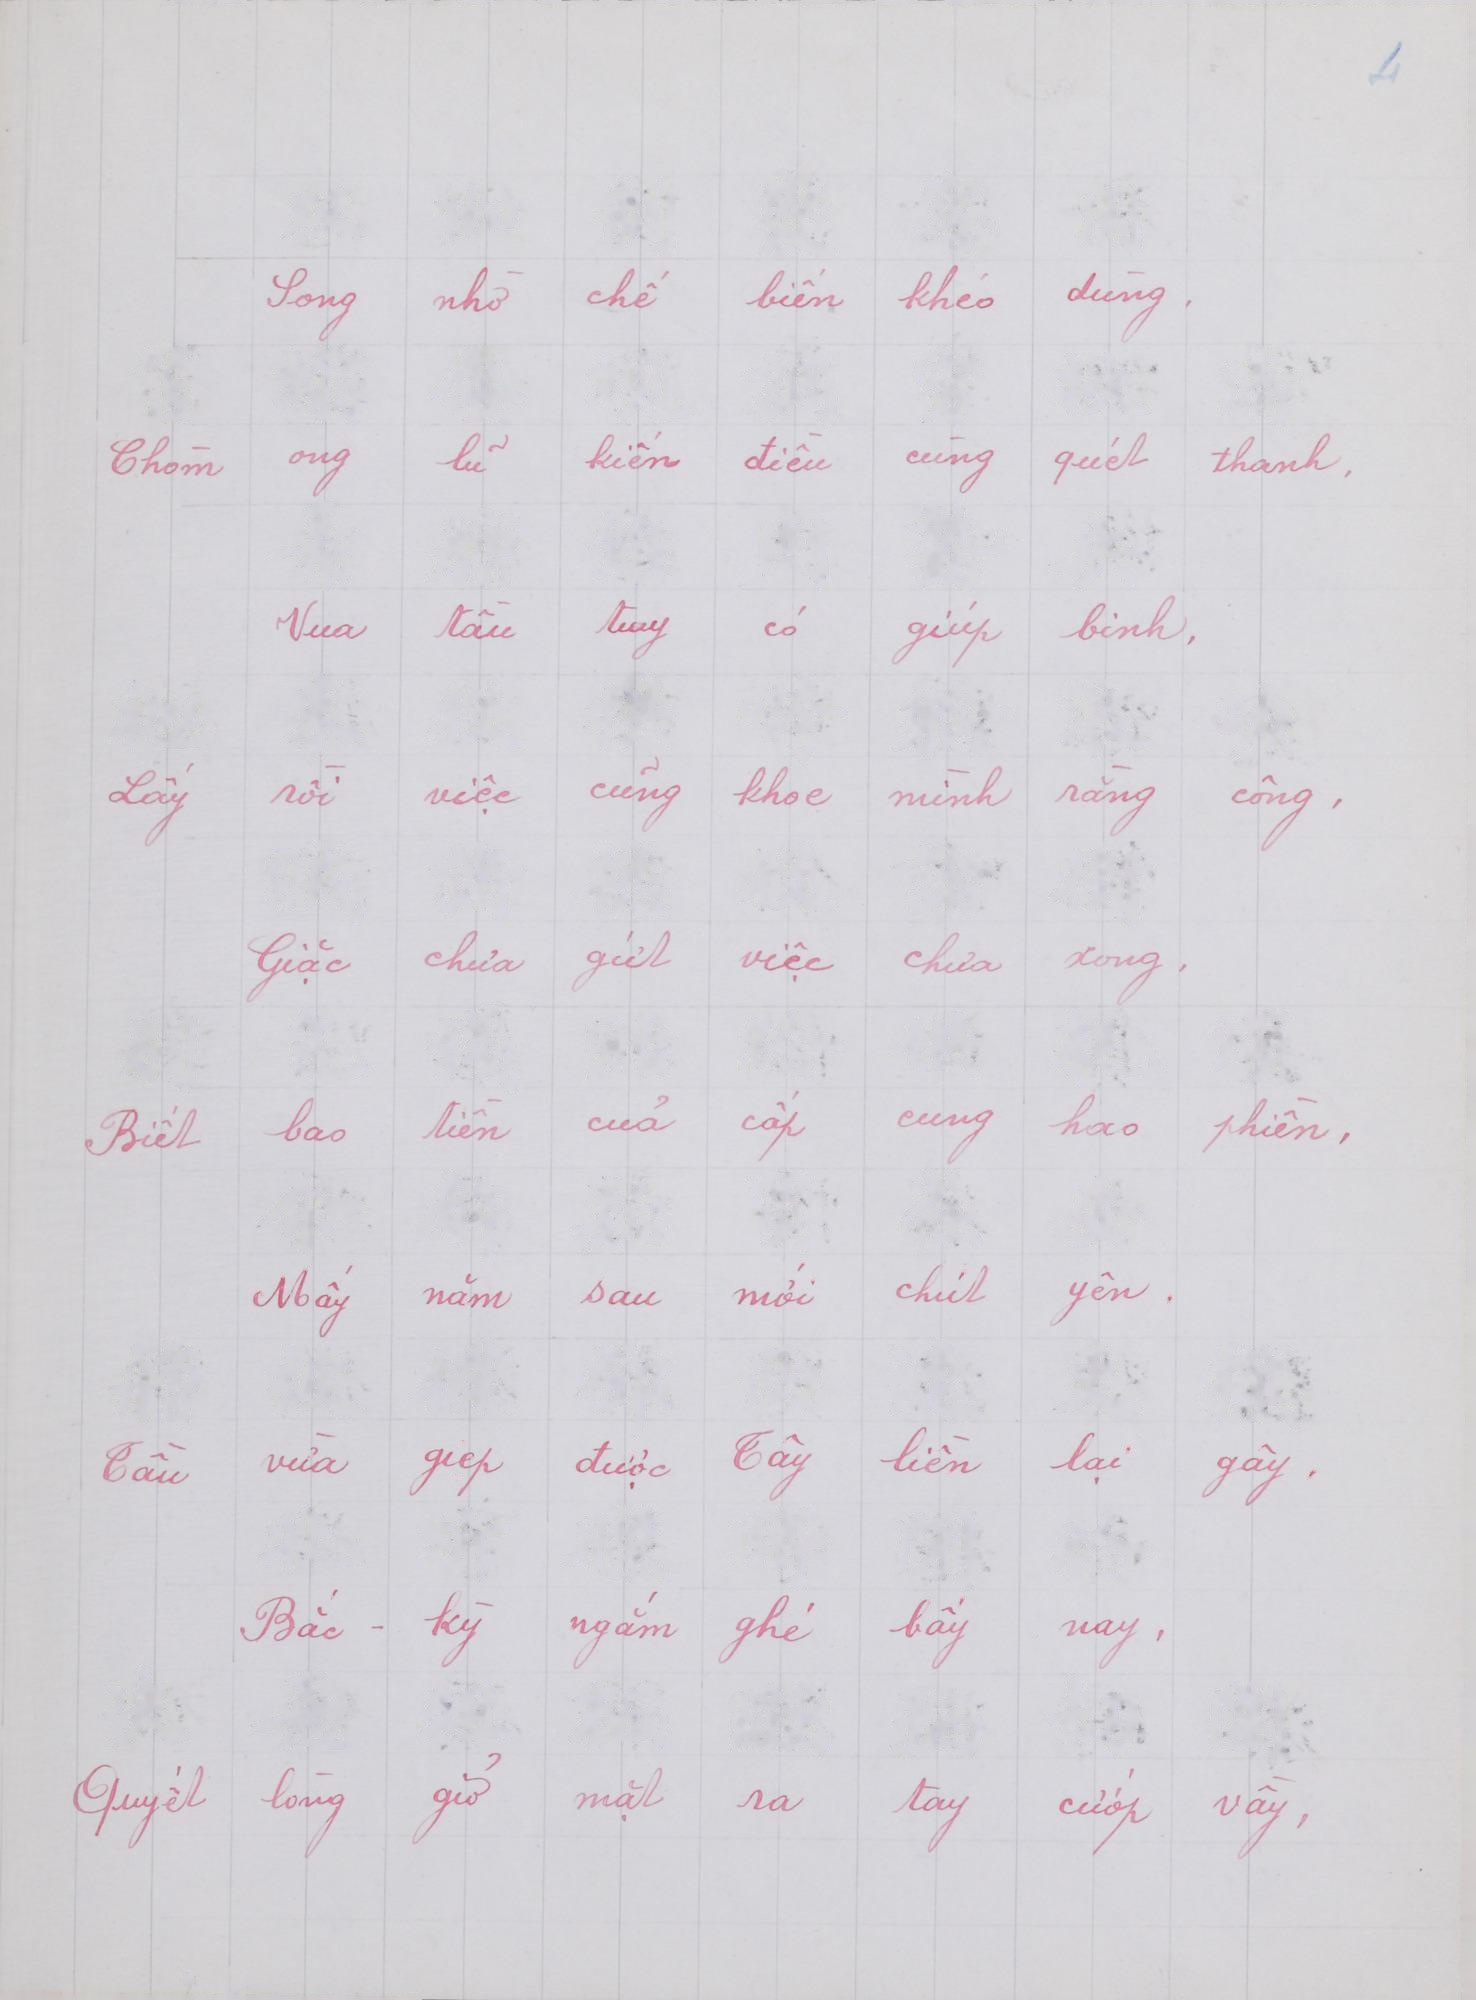 4
Song nhờ chế biến khéo dùng,
Chòm ong lũ kiến điều cùng quét thanh,
Vua tầu tuy có giúp binh,
Lấy rồi việc cũng khoe mình rằng công,
Giặc chưa gứt việc chưa xong,
Biết bao tiền cuả cấp cung hao phiền,
Mấy năm sau mới chút yên.
Tầu vừa giẹp được Tây liền lại gây.
Bắc - kỳ ngắm ghé bấy nay,
Quyết lòng giở mặt ra tay cướp vầy,